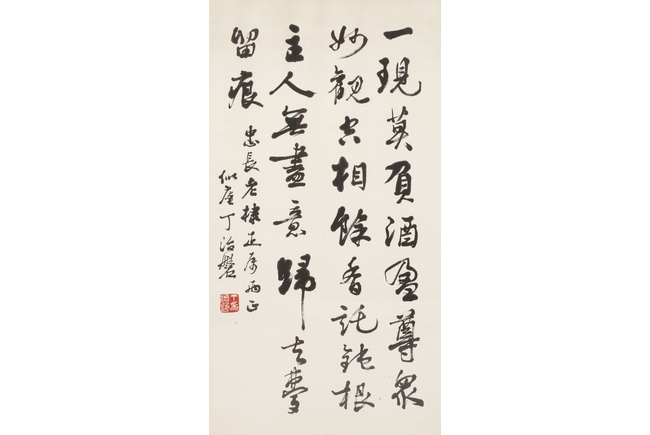 一現莫負酒盈尊眾
妙觀空相餘香託鈍根
主人無盡意歸去夢
留痕
忠長老棣正屬正
似庵丁治磐